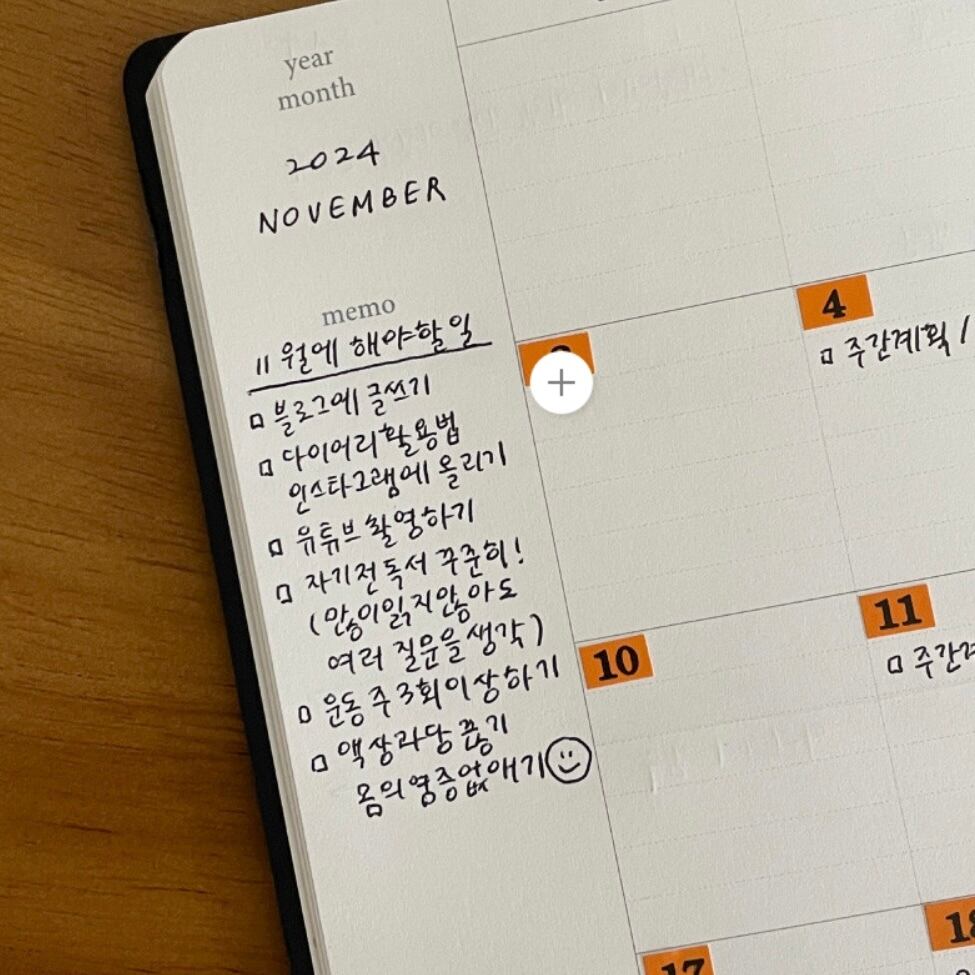 year
month
2024
NOVEMBER
memo
11월에 해야할일
□ 블로그에 글쓰기
□ 다이어리 활용법
인스타그램에 올리기
□ 유튜브 촬영하기
□ 자기전 독서 꾸준히!
(많이 읽지 않아도
여러 질문을 생각)
□ 운동 주3회이상하기
□ 액상과당 끊기
몸의 염증없애기
4
□ 주간계획
10
11
□ 주간계
17
18